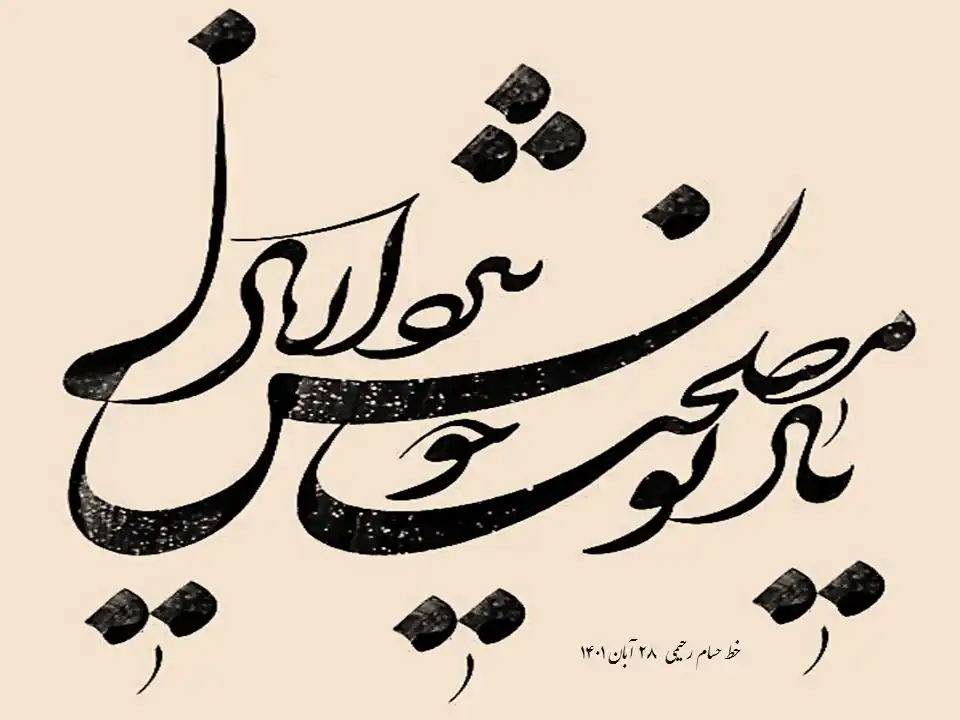 یاد تو مصلحت خویش ببرد از یادم
خط حسام رحیمی ۲۸ آبان ۱۴۰۱